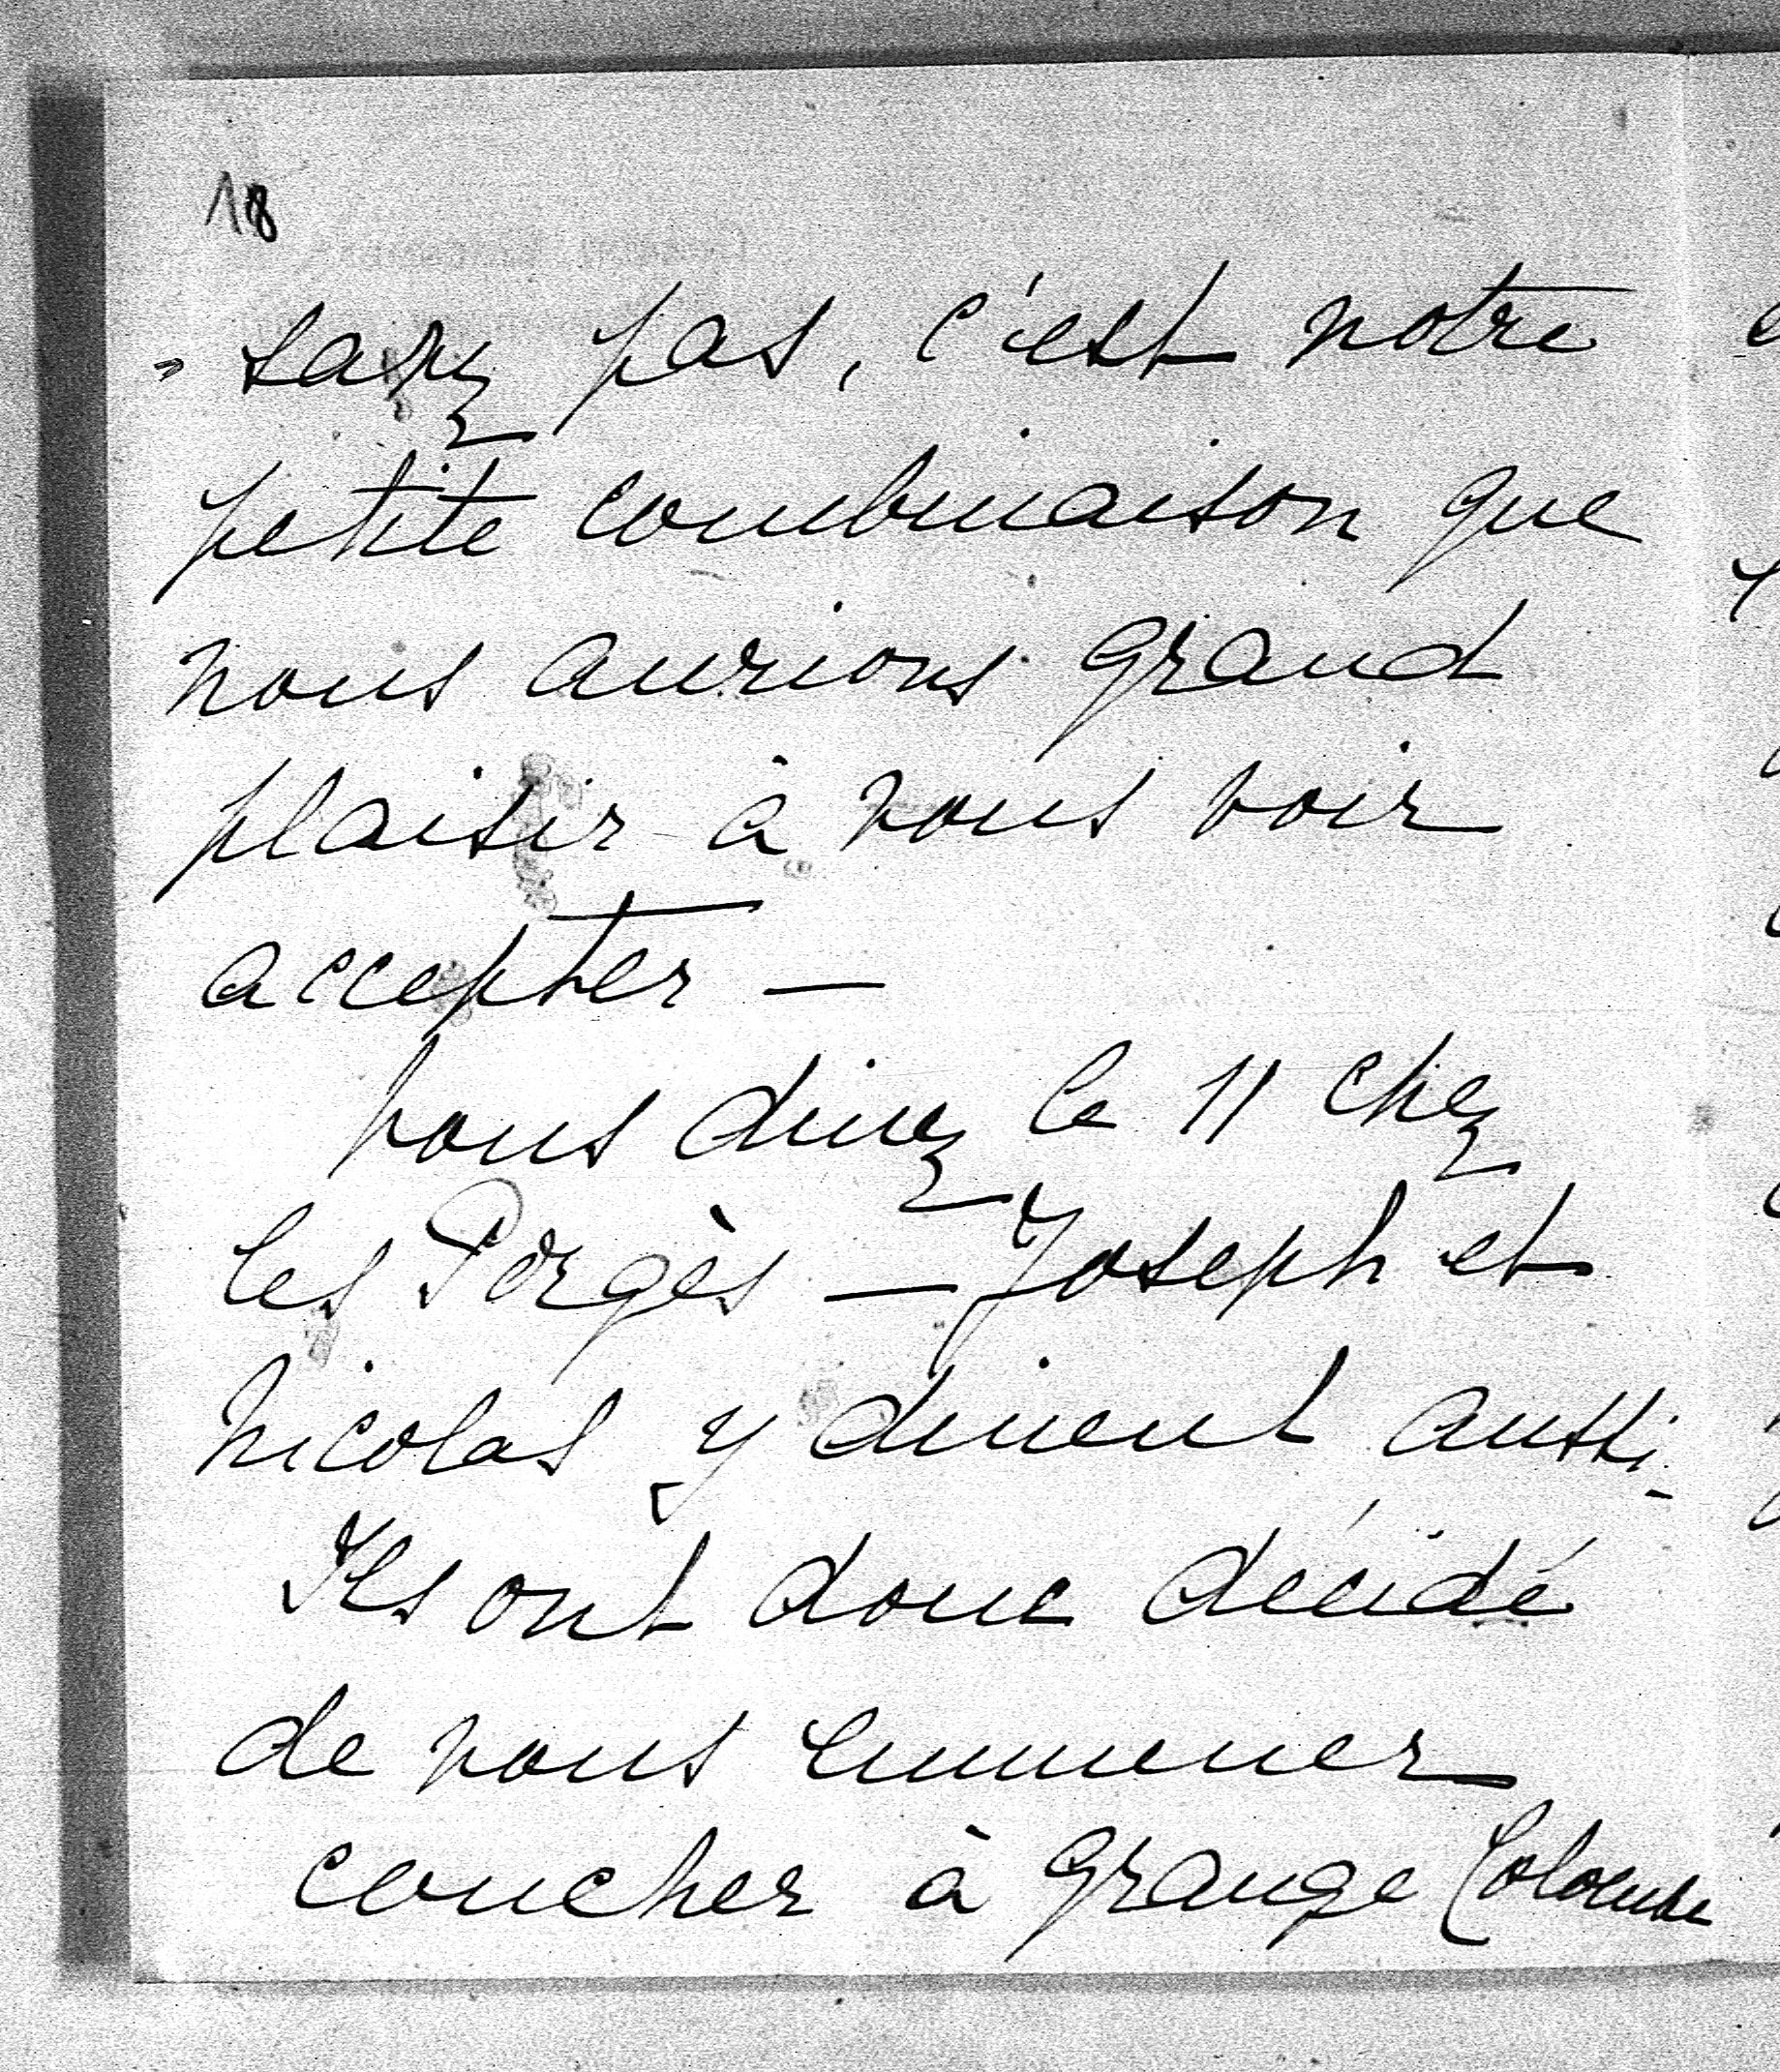 18
- sazez pas, c'est notre
petite combinaison que
nous aurions grand
plaisir à vous voir
accepter —
Vous dinez le 11 chez
les Porgès — Joseph et
Nicolas y dinent aussi -
Ils ont donc décidé
de vous emmener
coucher à Grange Colombe